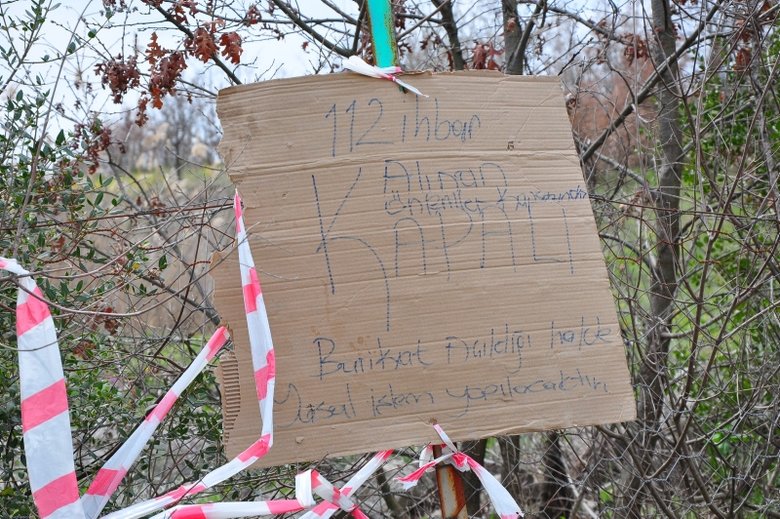 112 ihbar
Alınan
önlemler Kapsamında
KAPALI
Barikat Açıldığı halde
Yasal işlem yapılacaktır